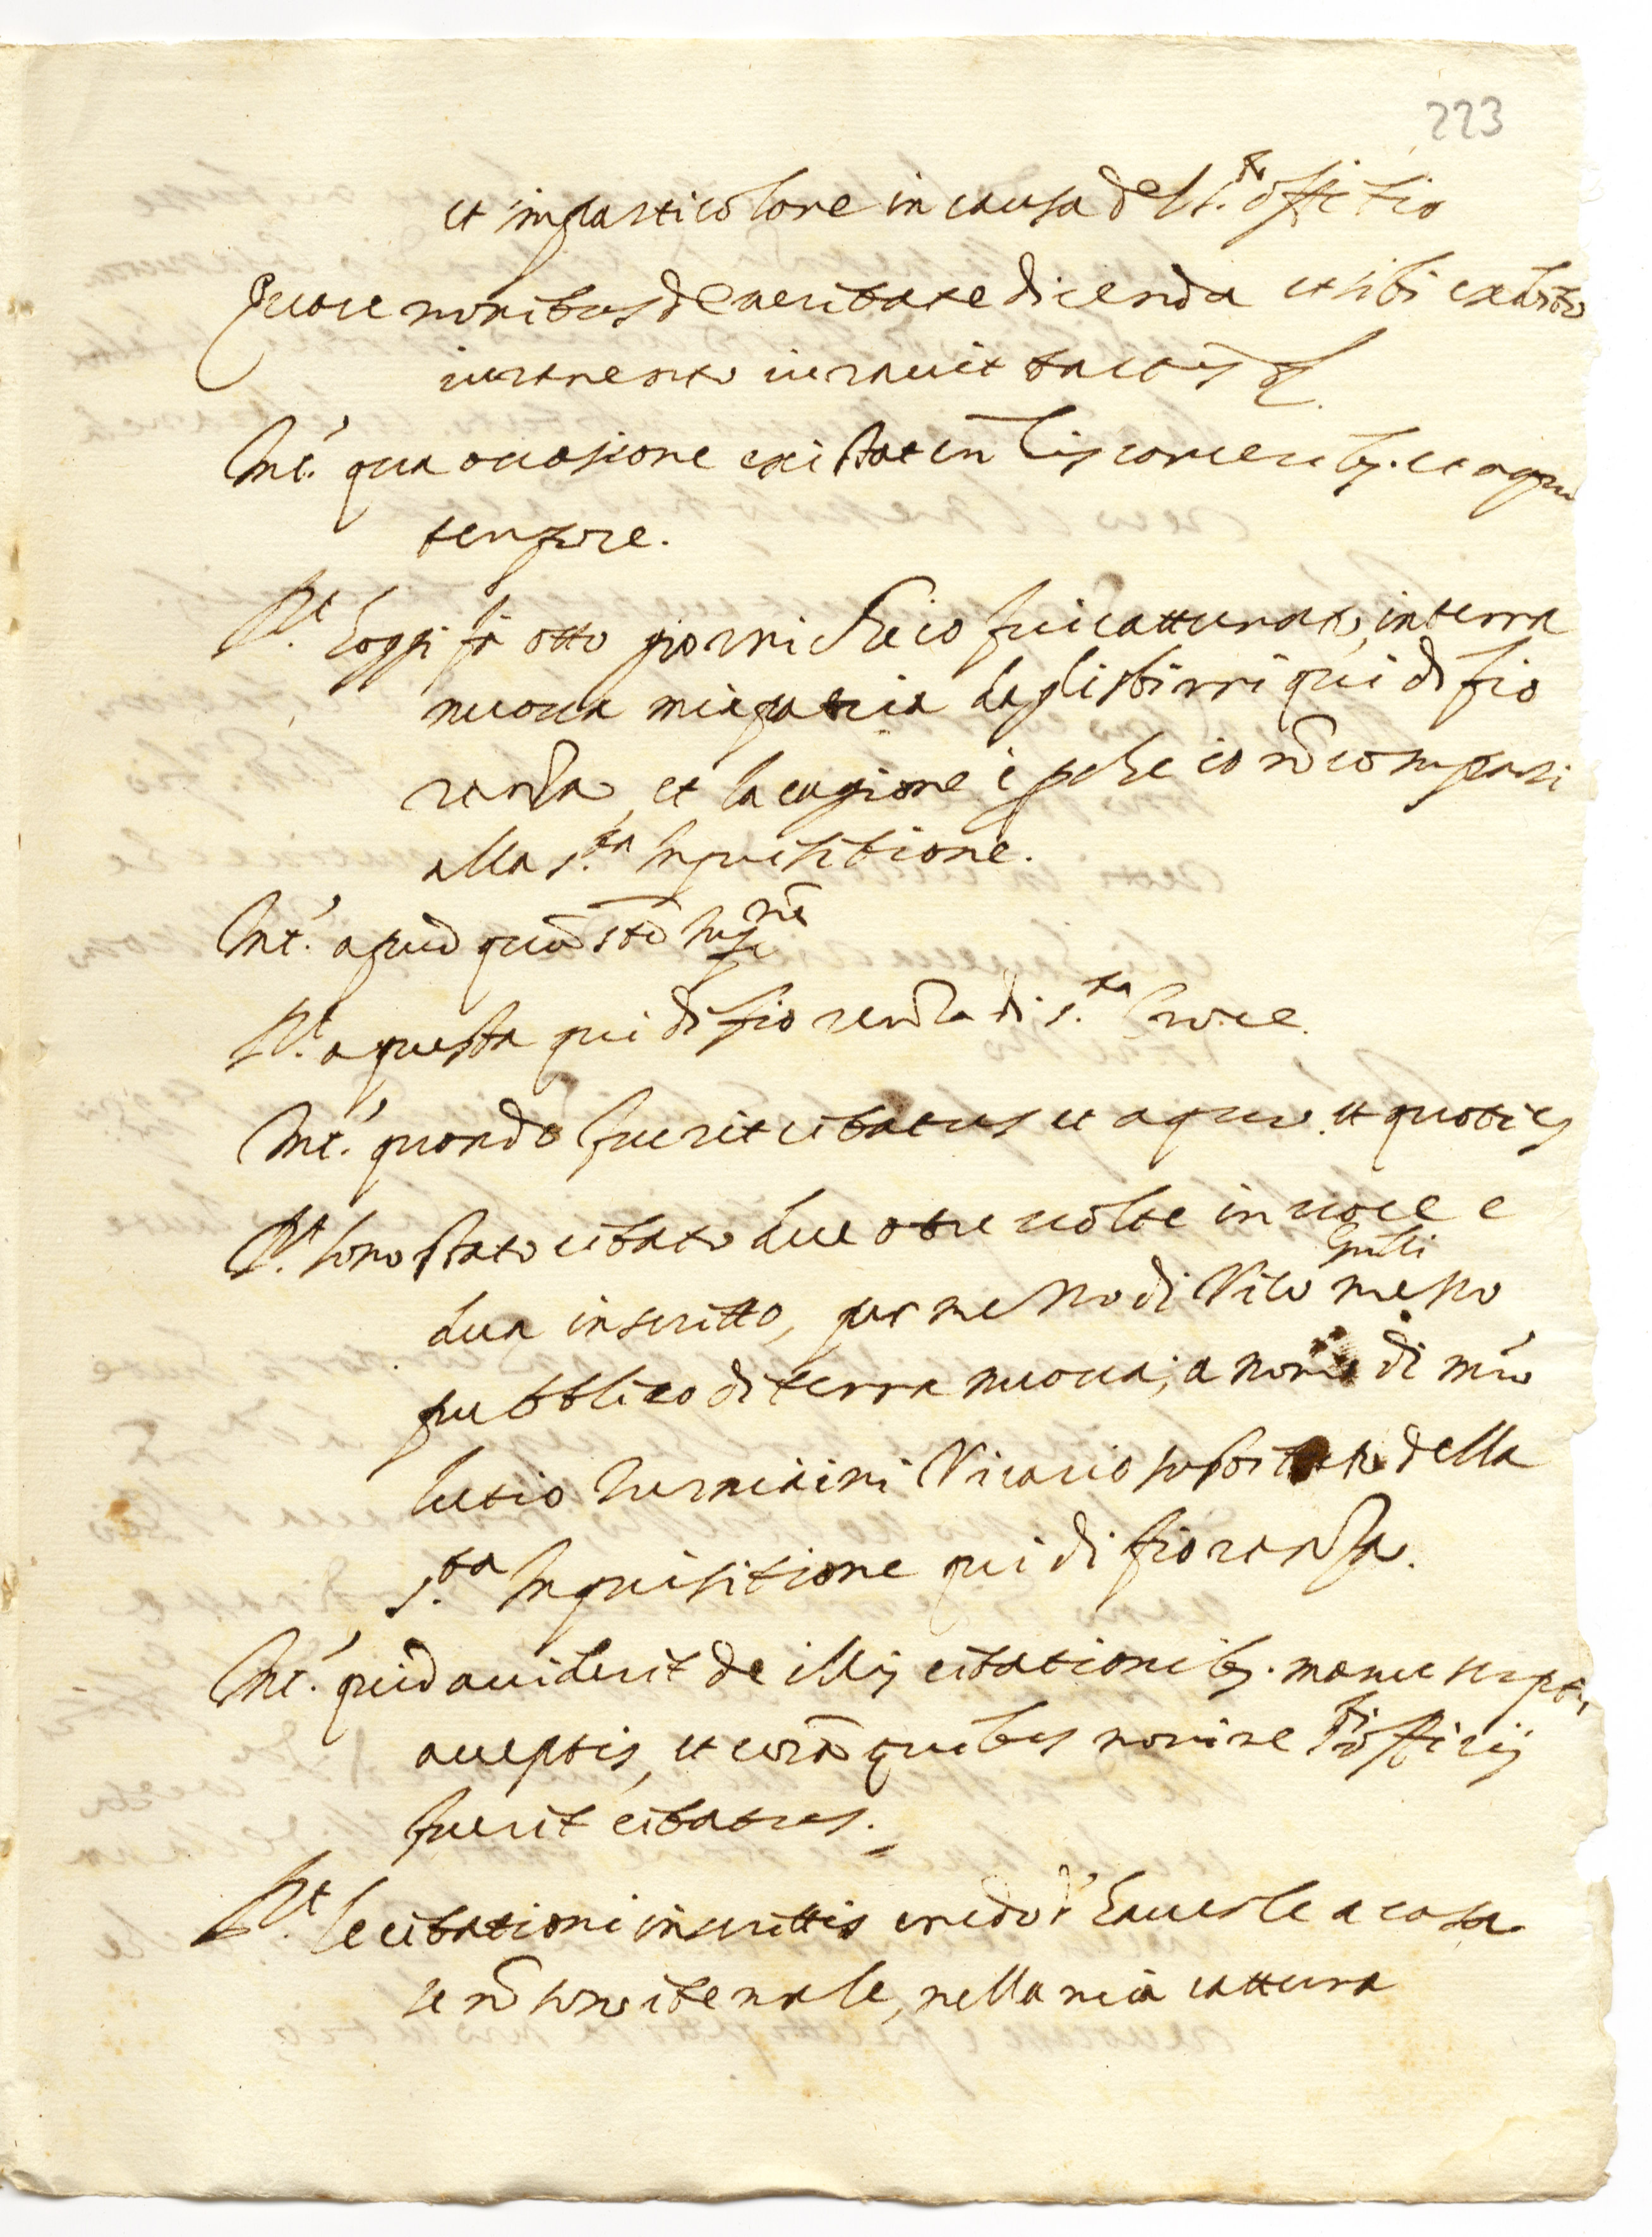 223
et in particolare in causa del S.to offitio
Quare monitus de veritate dicenda et sibi exhibito
iuramento iuravit tactis etc.
Int.s qua occasione existat in his carceribs. et a quo
tempore.
R.t hoggi fà otto giorni che io fui catturato, in terra
nuova mia patria dagli sbirri qui di fio
renza, et la cagione è p che io nō comparsi
alla s.ta Inquisitione.
Int.s apud quā stā Inqne
R.t a questa qui di fiorenza di s.ta Croce.
Int.s quando fuerit citatus et a quo. et quoties
R.t sono stato citato due o tre volte in voce e
dua in scritto, per me Nodi Vico Gulli messo
pubblico di terra nuova, a nome di mr̄o
lutio Vicario sostituto della
s.ta Inquisitione qui di fiorenza.
Int.s quid acciderit de illis citationibs. manuscriptis
acceptis, et corā quibus nomine sti officij
fuerit citatus.
R.t le citationi in scrittis credo d' haverle a casa
se nō sono ite male, nella mia cattura